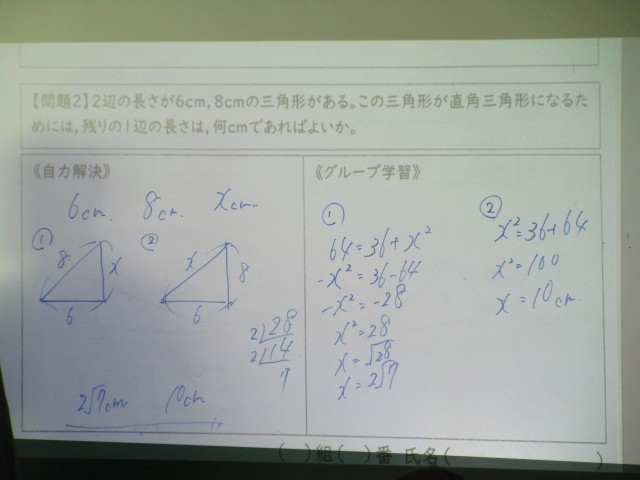 【問題2】2辺の長さが6cm, 8cmの三角形がある。この三角形が直角三角形になるた
めには, 残りの1辺の長さは, 何cmであればよいか。
《自力解決》
6cm. 8cm. xcm.
① 8 x 6
② x 8 6
2 28
2 14
7
2√7cm 10cm
《グループ学習》
①
64=36+x²
-x²=36-64
-x²=-28
x²=28
x=√28
x=2√7
②
x²=36+64
x²=100
x=10cm.
( )組( )番 氏名( )